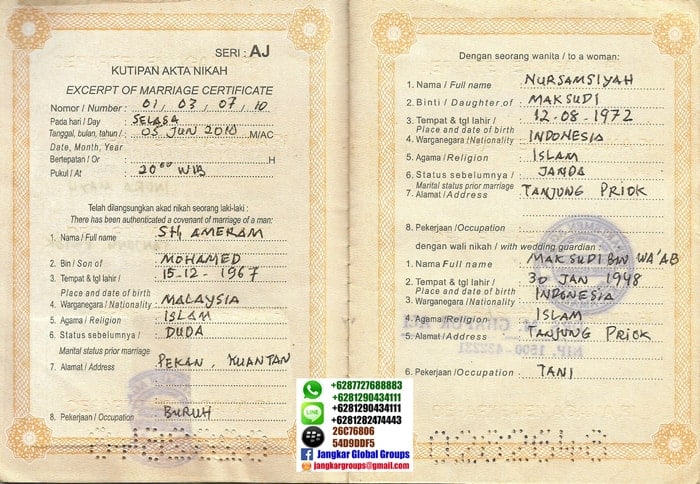 SERI : AJ
KUTIPAN AKTA NIKAH
EXCERPT OF MARRIAGE CERTIFICATE
Nomor / Number : 01, 03, 07, 10
Pada hari / Day : SELASA
Tanggal, bulan, tahun / : 05 JUN 2010 M/AC
Date, Month, Year
Bertepatan / Or : H
Pukul / At : 20⁰⁰ WIB
Telah dilangsungkan akad nikah seorang laki-laki :
There has been authenticated a covenant of marriage of a man:
1. Nama / Full name : AMERAM
2. Bin / Son of : MOHAMED
3. Tempat & tgl lahir / : 15-12-1967
Place and date of birth
4. Warganegara / Nationality : MALAYSIA
5. Agama / Religion : ISLAM
6. Status sebelumnya / : DUDA
Marital status prior marriage
7. Alamat / Address : PEKAN, KUANTAN
8. Pekerjaan / Occupation : BURUH
Dengan seorang wanita / to a woman:
1. Nama / Full name : NURSAMSIYAH
2. Binti / Daughter of : MAKSUDI
3. Tempat & tgl lahir / : 12-08-1972
Place and date of birth
4. Warganegara / Nationality : INDONESIA
5. Agama / Religion : ISLAM
6. Status sebelumnya / : JANDA
Marital status prior marriage
7. Alamat / Address : TANJUNG PRIOK
8. Pekerjaan / Occupation :
dengan wali nikah / with wedding guardian :
1. Nama / Full name : MAKSUDI BIN WA'AB
2. Tempat & tgl lahir / : 30 JAN 1948
Place and date of birth
3. Warganegara / Nationality : INDONESIA
4. Agama / Religion : ISLAM
5. Alamat / Address : TANJUNG PRIOK
6. Pekerjaan / Occupation : TANI
+6287727688883
+6281290434111
LINE +6281290434111
+6281282474443
26C76806
54D9DDF5
Jangkar Global Groups
jangkargroups@gmail.com